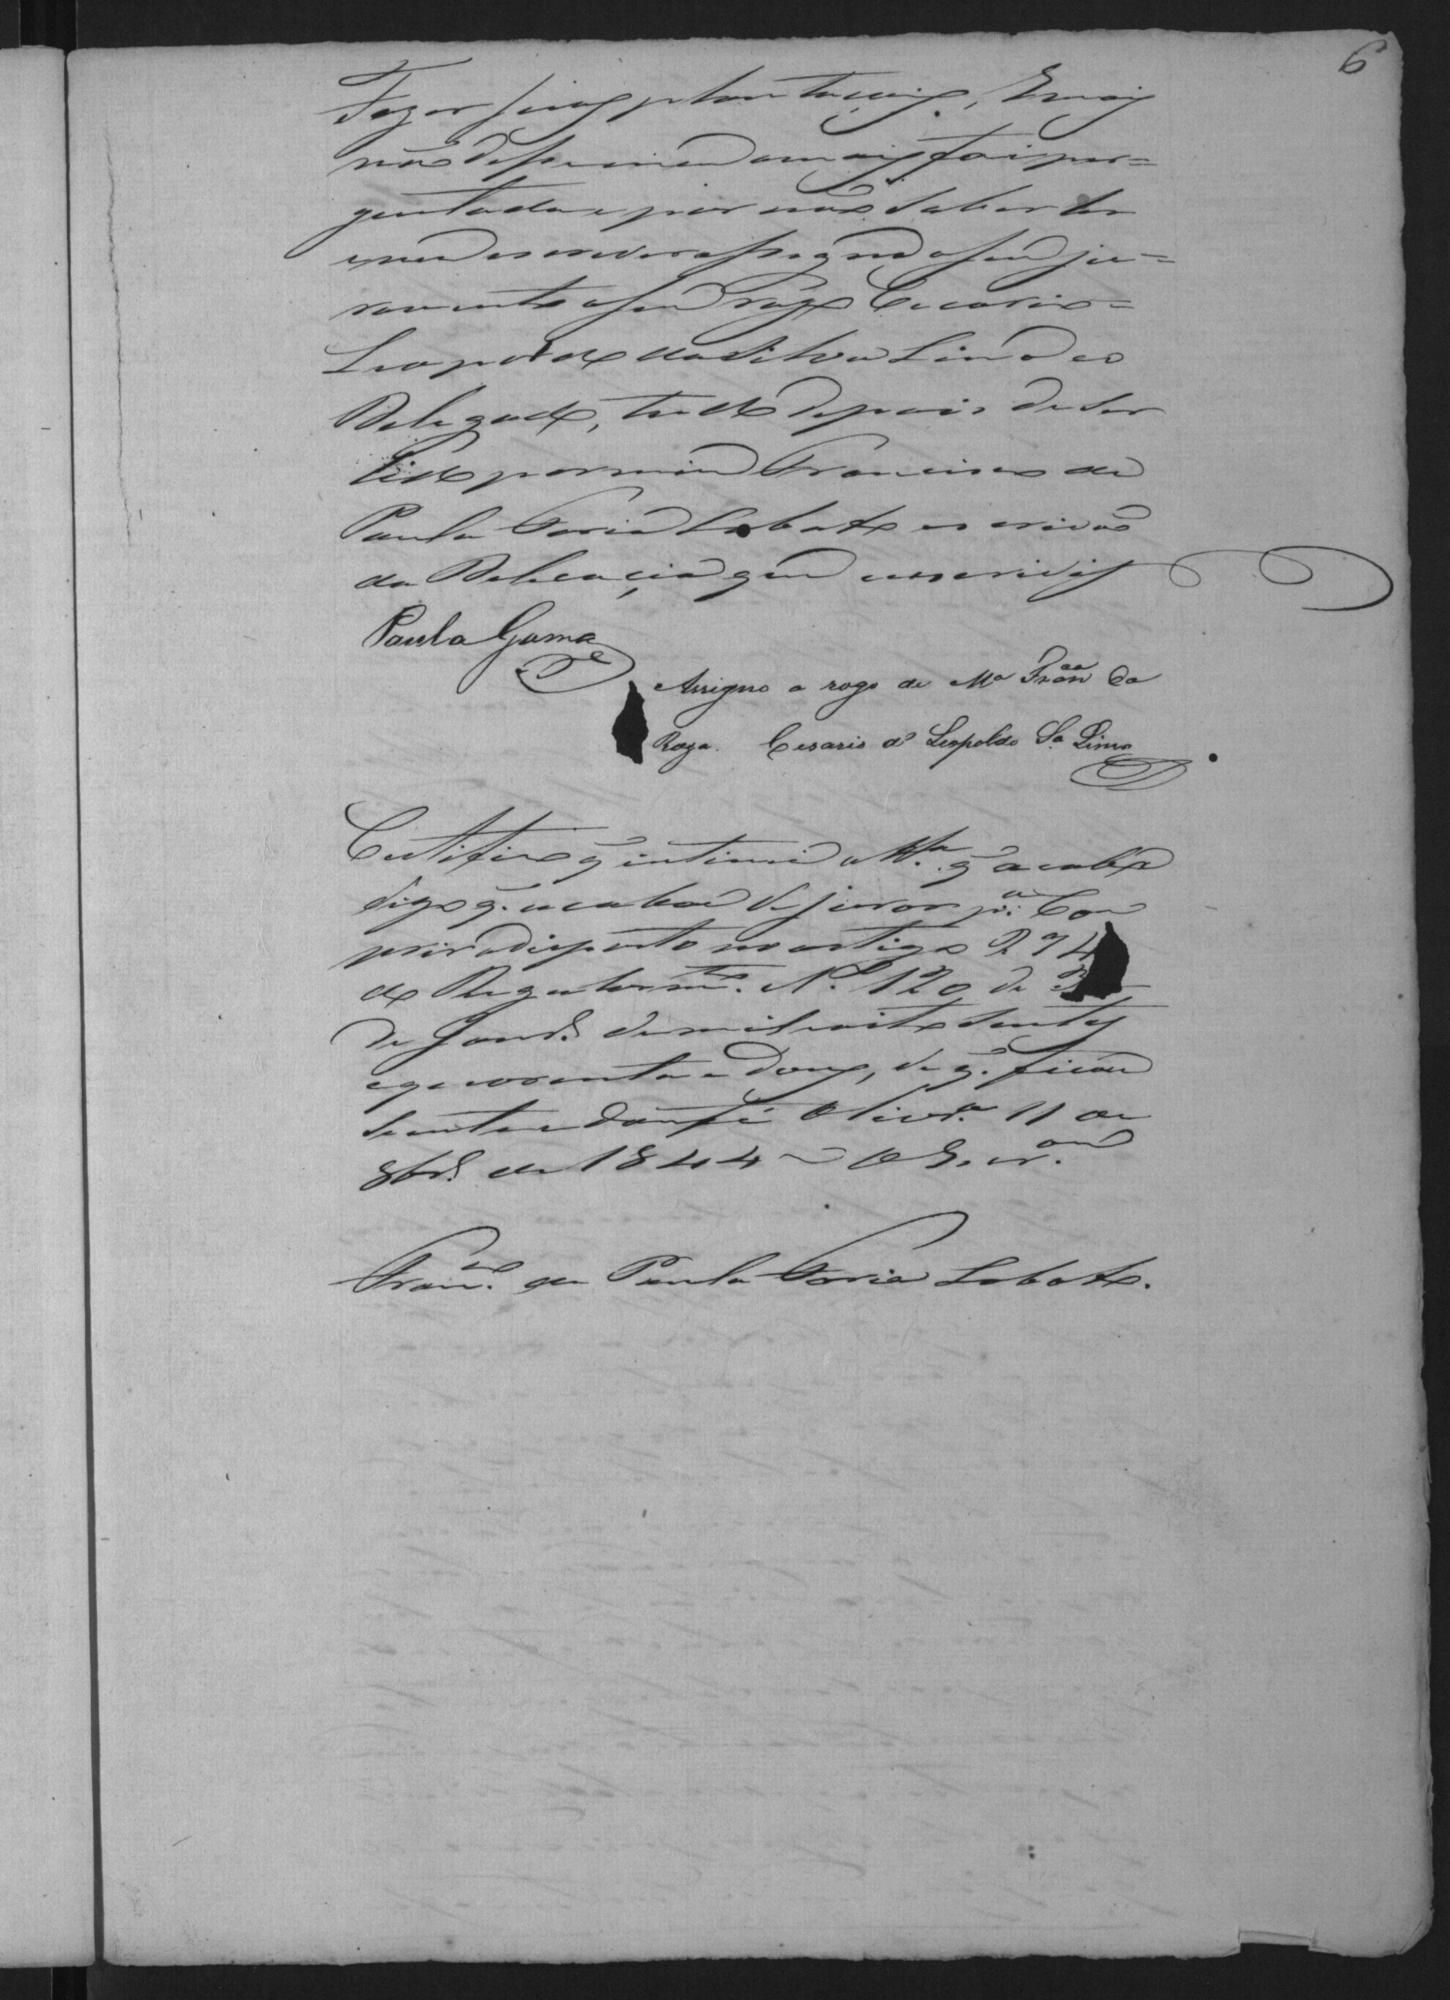 6
Fazer suas plantaçoens, E mais
não disse nem a mais foi per=
guntada e por não saber ler
nem escrever assignou seu ju=
ramento a seu rogo Cezario
Leopoldo da Silva Lima e o
Delegado, tudo depois de ser
lido por mim Francisco de
Paula Faria Lobato escrivão
da Delegacia que escrevi
Paula Gama
Assigno a rogo de Mª Franca da
Roza. Cesario d' Leopoldo Sª Lima
Certifico q̃ intimei a Tta. q̃ acaba
digo q̃ acabou de jurar pª. Com
prir o disposto no artigo 294
do Regulamto. Nº 120 de 31
de Janrº. de mil oito sentos
e quarenta e dous, de q̃. ficou
sciente e dou fé Olivrª. 11 de
8brº. de 1844 O Escram.
Franco. de Paula Faria Lobato.